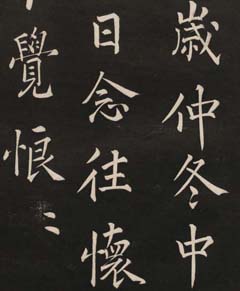 嵗仲冬中
日念往懷
覺恨〻